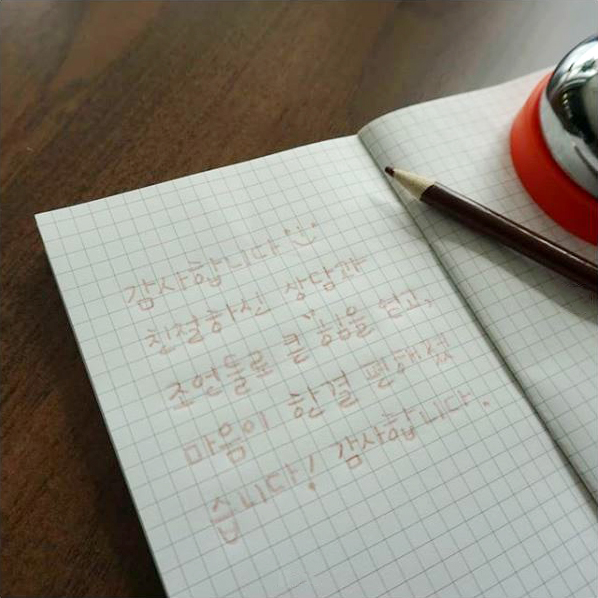 감사합니다
친절하신 상담과
조언들로 큰 "힘"을 얻고,
마음이 한결 편해졌
습니다! 감사합니다.